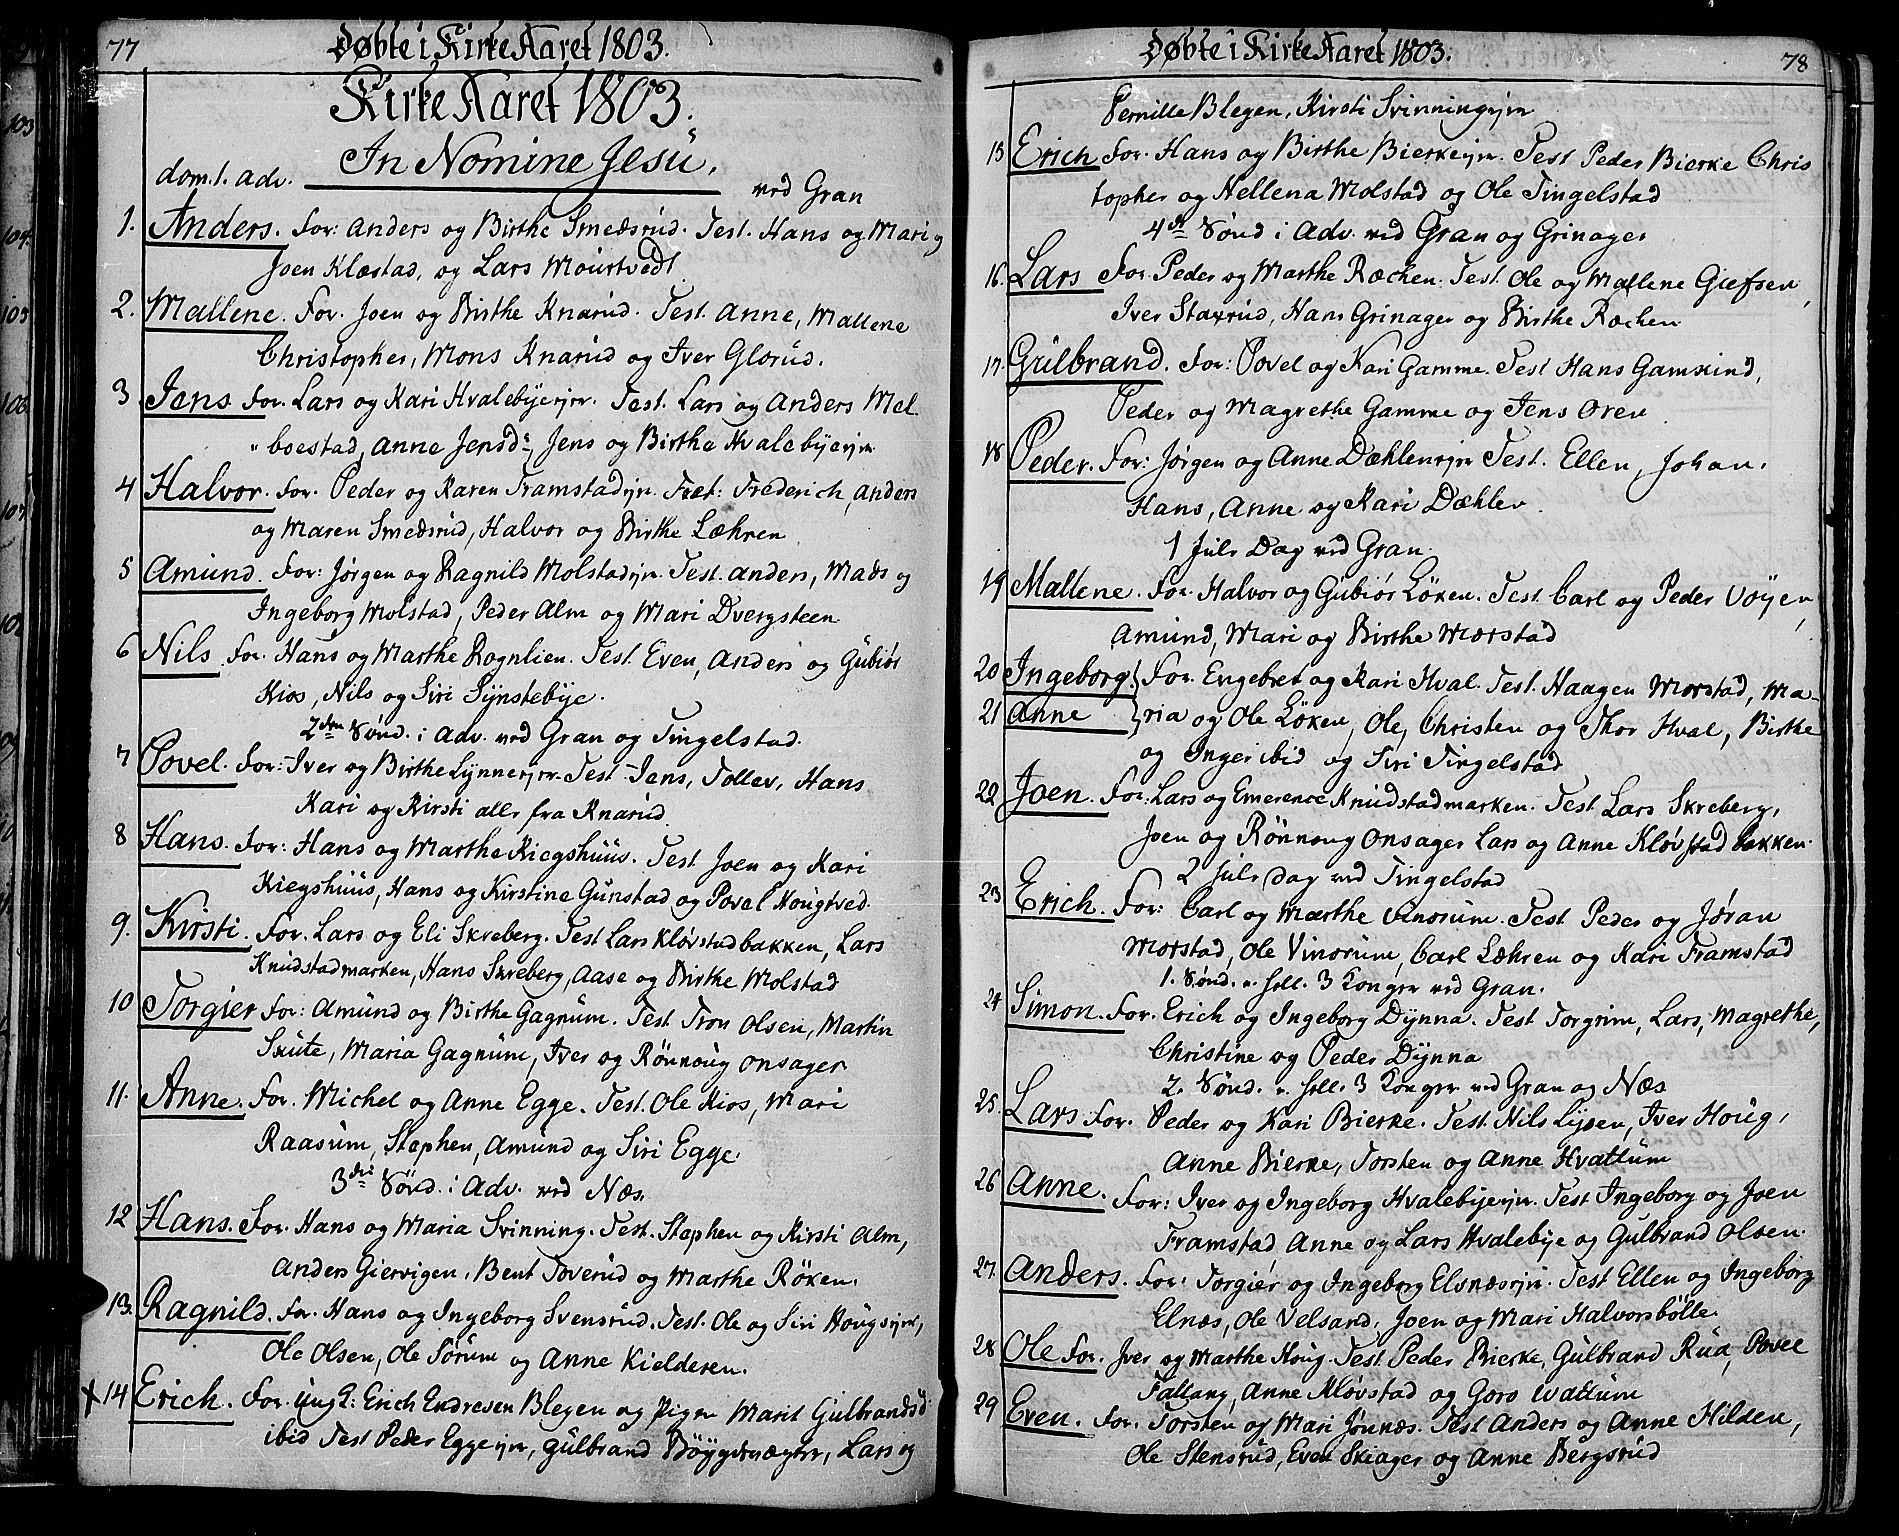 77
Døbte i Kirke Aaret 1803.
Kirke Aaret 1803.
In Nomine Jesu.
dom. 1. adv. ved Gran
1. Anders. For: Anders og Birthe Smedsrud. Test. Hans og Mari og
Joen Klæstad, og Lars Mourtvedt
2. Mallene. For. Joen og Birthe Knarud. Test. Anne, Mallene
Christopher, Mons Knarud og Iver Glorud.
3 Jens For. Lars og Kari Hvalebyeejer. Test. Lars og Anders Mel
boestad, Anne Jensd: Jens og Birthe Hvalebyeejer
4 Halvor. For. Peder og Karen Framstadejer. Test: Frederich, Anders
og Maren Smedsrud, Halvor og Birthe Læhren
5 Amund. For: Jørgen og Ragnild Molstadejer. Test. Anders, Mads og
Ingeborg Molstad, Peder Alm og Mari Dvergsteen
6 Nils For. Hans og Marthe Rognlien. Test. Even, Anders og Gubiør
Kios, Nils og Siri Synstebye.
2den Sønd. i Adv. ved Gran og Tingelstad.
7 Povel. For: Iver og Birthe Lynneejer. Test Jens, Tollev, Hans
Kari og Kirsti alle fra Knarud.
8 Hans. For: Hans og Marthe Kiegshuus. Test Joen og Kari
Kiegshuus, Hans og Kirstine Gunstad og Povel Hougtved.
9. Kirsti. For. Lars og Eli Skreberg. Test Lars Kløvstadbakken, Lars
Knudstadmarken, Hans Skreberg, Aase og Birthe Molstad
10 Torgier For: Amund og Birthe Gagnum. Test Tron Olsen, Martin
Skute, Maria Gagnum, Iver og Rönnoug Onsager
11. Anne. For. Michel og Anne Egge. Test. Ole Kios, Mari
Raasum, Stephen, Amund og Siri Egge.
3die Sönd. i Adv. ved Næs.
12 Hans. For. Hans og Maria Svinning. Test. Stephen og Kirsti Alm,
Anders Giervigen, Bent Toverud og Marthe Röken.
13. Ragnild. For. Hans og Ingeborg Svensrud. Test. Ole og Siri Hougsejer,
Ole Olsen, Ole Sørum og Anne Kielderen.
x14 Erich. For. Ung K: Erich Endresen Blegen og Pigen Marit Gulbrandsd
ibid Test Peder Eggeejer, Gulbrand Lars og
78
Døbte i Kirke Aaret 1803.
Pernille Blegen, Kirsti Svinningejer
15 Erich For. Hans og Birthe Bierkeejer. Test Peder Bierke Chris
topher og Hellena Molstad og Ole Tingelstad
4de Sønd i Adv. ved Gran og Grinager
16. Lars For. Peder og Marthe Ræcken. Test. Ole og Mallene Giefsen,
Iver Staxrud, Hans Grinager og Birthe Ræcken
17. Gulbrand. For: Povel og Kari Gamme. Test Hans Gamkind,
Peder og Magrethe Gamme og Jens Oren
18 Peder. For: Jørgen og Anne Dæhlenejer Test. Ellen, Johan,
Hans, Anne og Kari Dæhlen.
1 Juls Dag ved Gran.
19 Mallene. For. Halvor og Gubiør Löken. Test. Carl og Peder Vöyen,
Amund, Mari og Birthe Morstad
20 Ingeborg. For. Engebret og Kari Hval. Test. Haagen Morstad, Ma-
21 Anne ria og Ole Löken, Ole, Christen og Thor Hval, Birthe
og Inger ibid og Siri Tingelstad
22 Joen. For: Lars og Emerence Knudstadmarken. Test Lars Skreberg,
Joen og Rönnoug Onsager Lars og Anne Kløvstad bakken.
2 Juls dag ved Tingelstad
23 Erich. For: Carl og Marthe Vinorum. Test Peder og Jøran
Morstad, Ole Vinorum, Carl Læhren og Kari Framstad
1. Sønd. e. hell. 3 Konger ved Gran.
24 Simon. For. Erich og Ingeborg Dynna. Test Torgrim, Lars, Magrethe,
Christine og Peder Dynna
2. Sönd. e. hell. 3 Konger ved Gran og Næs
25. Lars For. Peder og Kari Bierke. Test. Nils Lysen, Iver Houg,
Anne Bierke, Torsten og Anne Hvattum
26 Anne. For: Iver og Ingeborg Hvalebyeejer. Test Ingeborg og Joen
Framstad Anne og Lars Hvalebye og Gulbrand Olsen.
27. Anders. For: Torgier og Ingeborg Elsnæsejer. Test Ellen og Ingeborg
Elnæs, Ole Velsand, Joen og Mari Halvorsbölle.
28 Ole For. Iver og Marthe Houg. Test Peder Bierke, Gulbrand Rua, Povel
Fallang, Anne Kløvstad og Goro Wattum
29 Even. For: Torsten og Mari Jønnæs. Test Anders og Anne Hilden,
Ole Stensrud, Even Skiager og Anne Bergsrud